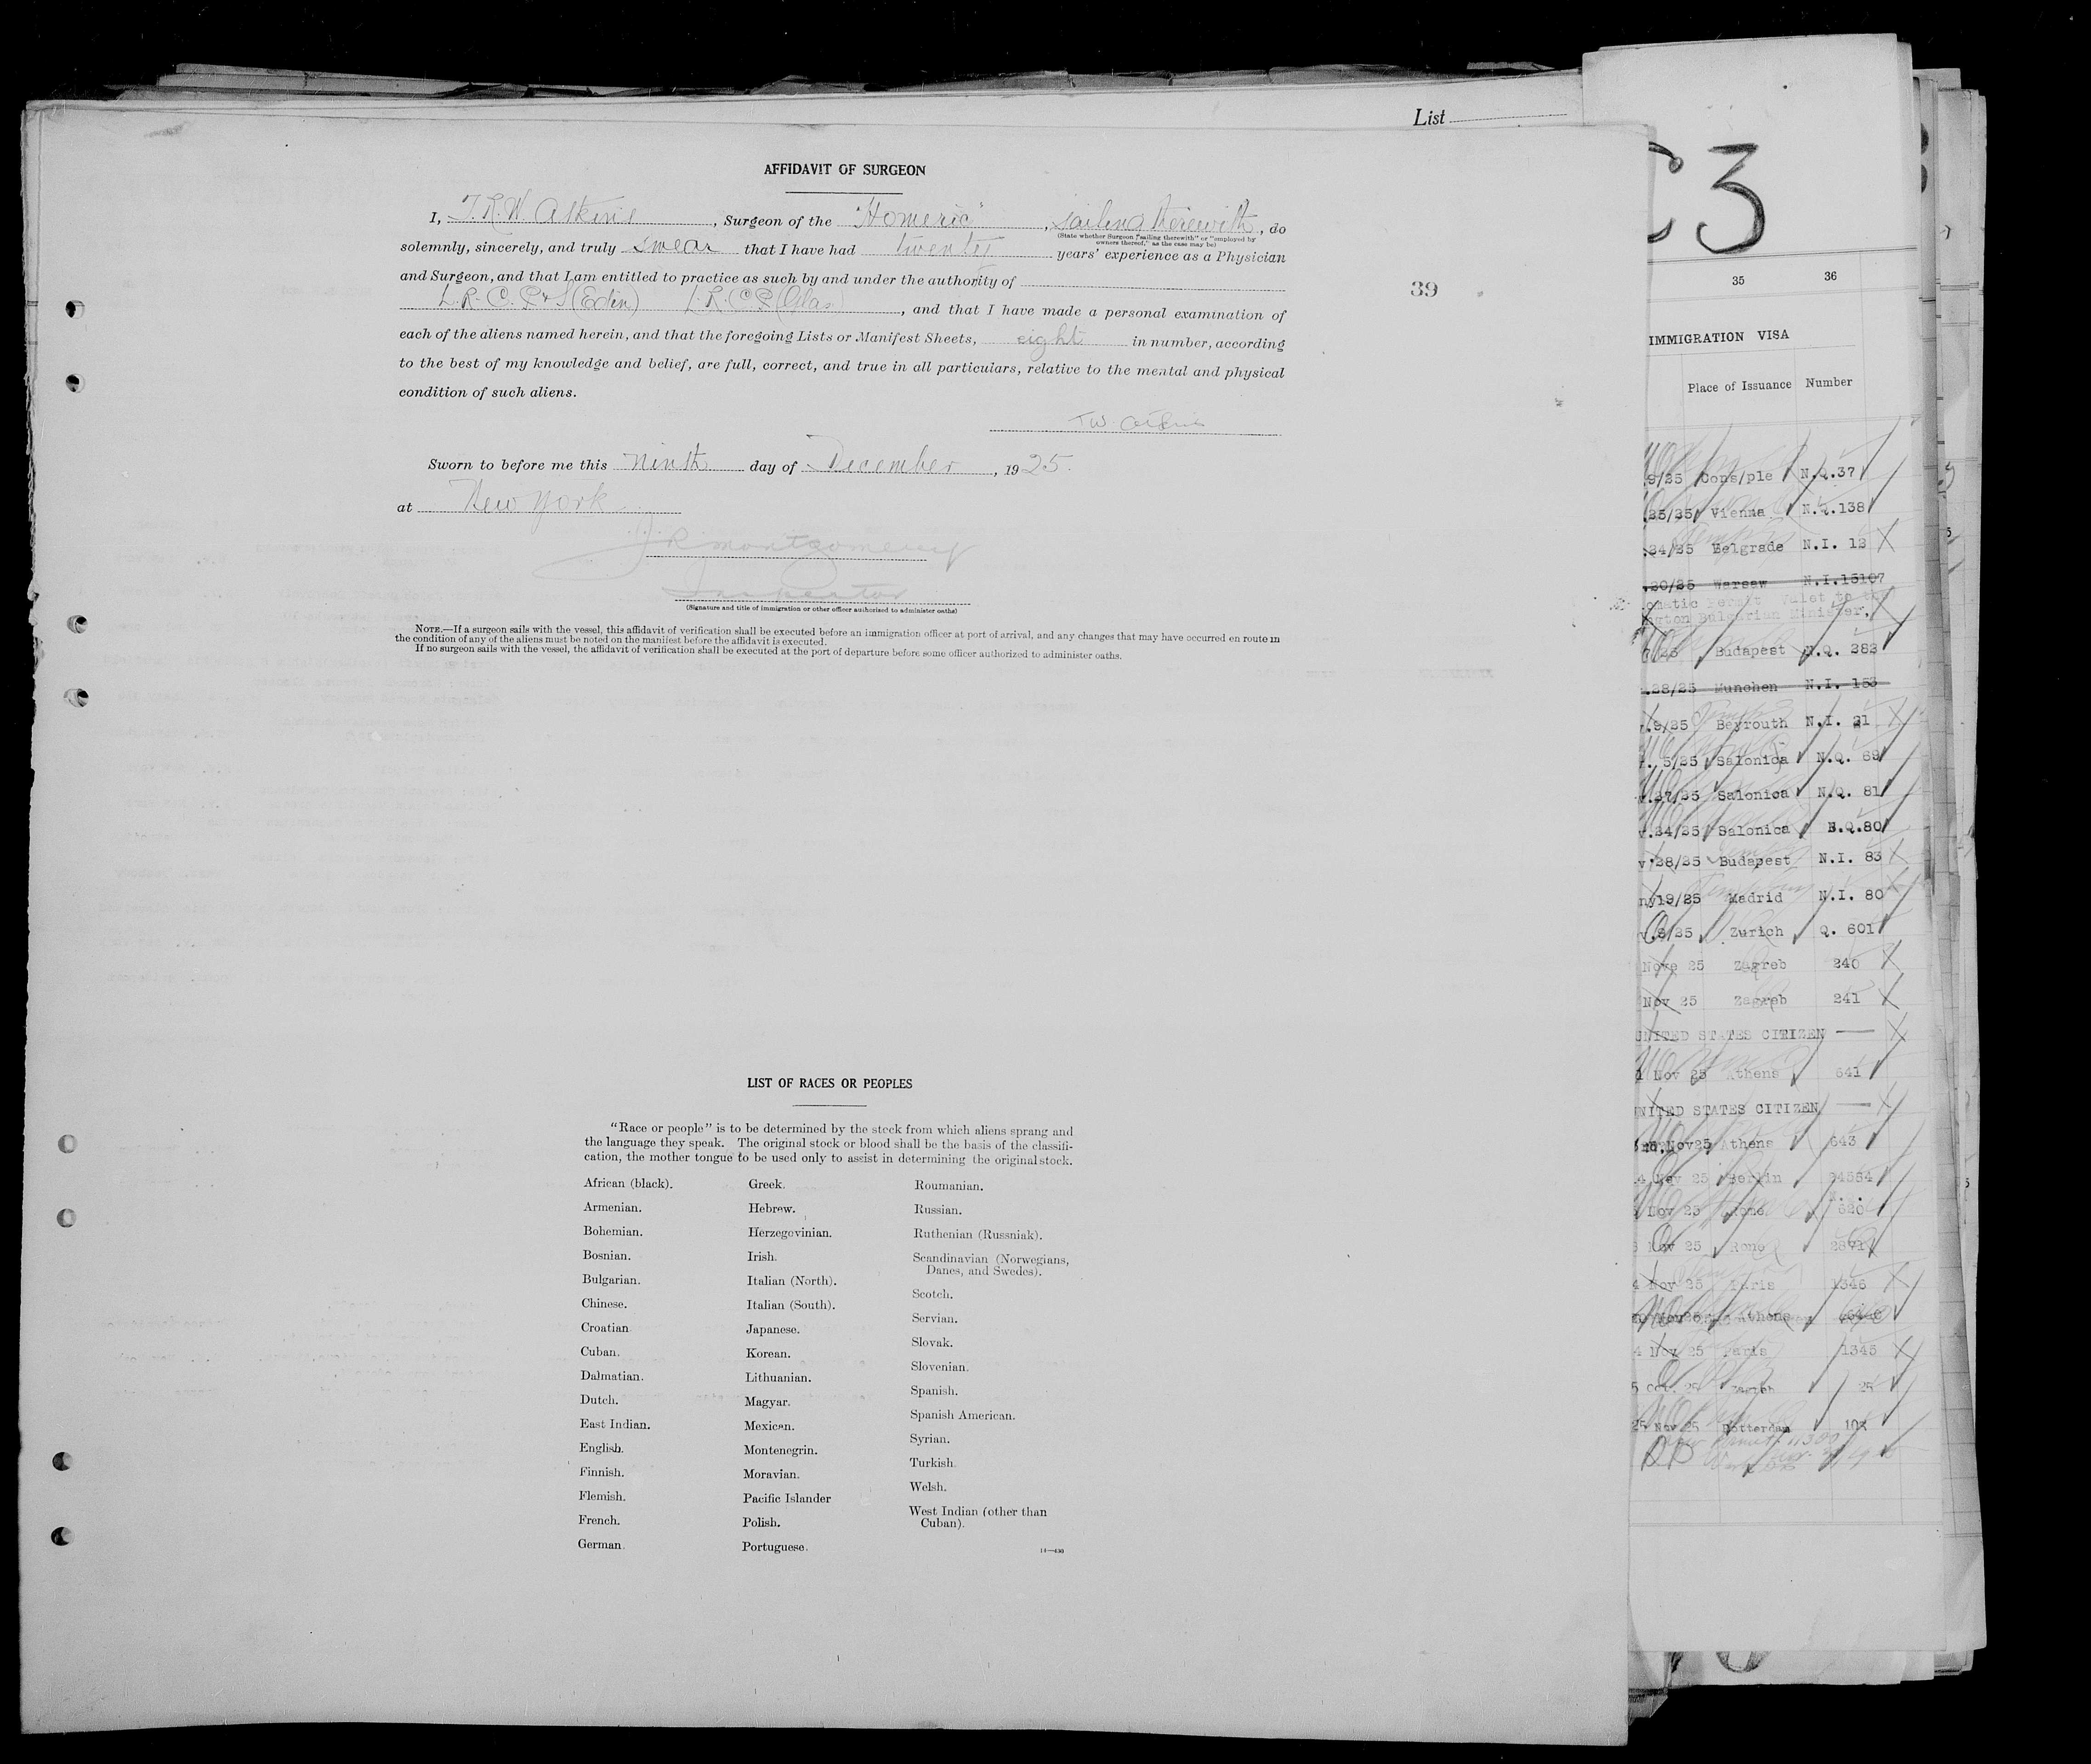 List
C3
AFFIDAVIT OF SURGEON
I, T.R.W. Atkins, Surgeon of the "Homeric", sailing therewith, do
(State whether Surgeon "sailing therewith" or "employed by
owners thereof," as the case may be)
solemnly, sincerely, and truly swear that I have had twenty years' experience as a Physician
and Surgeon, and that I am entitled to practice as such by and under the authority of
L.R.C.P.&S (Edin) L.R.C.P.S (Glas), and that I have made a personal examination of
each of the aliens named herein, and that the foregoing Lists or Manifest Sheets, eight in number, according
to the best of my knowledge and belief, are full, correct, and true in all particulars, relative to the mental and physical
condition of such aliens.
T W. Atkins
Sworn to before me this Ninth day of December, 1925.
at New York
Montgomery
Inspector
(Signature and title of immigration or other officer authorized to administer oaths)
NOTE.—If a surgeon sails with the vessel, this affidavit of verification shall be executed before an immigration officer at port of arrival, and any changes that may have occurred en route in
the condition of any of the aliens must be noted on the manifest before the affidavit is executed.
If no surgeon sails with the vessel, the affidavit of verification shall be executed at the port of departure before some officer authorized to administer oaths.
39
LIST OF RACES OR PEOPLES
"Race or people" is to be determined by the stock from which aliens sprang and
the language they speak. The original stock or blood shall be the basis of the classifi-
cation, the mother tongue to be used only to assist in determining the original stock.
African (black).
Armenian.
Bohemian.
Bosnian.
Bulgarian.
Chinese.
Croatian.
Cuban.
Dalmatian.
Dutch.
East Indian.
English.
Finnish.
Flemish.
French.
German.
Greek.
Hebrew.
Herzegovinian.
Irish.
Italian (North).
Italian (South).
Japanese.
Korean.
Lithuanian.
Magyar.
Mexican.
Montenegrin.
Moravian.
Pacific Islander
Polish.
Portuguese.
Roumanian.
Russian.
Ruthenian (Russniak).
Scandinavian (Norwegians,
Danes, and Swedes).
Scotch.
Servian.
Slovak.
Slovenian.
Spanish.
Spanish American.
Syrian.
Turkish.
Welsh.
West Indian (other than
Cuban).
14—430
35 36
IMMIGRATION VISA
Place of Issuance Number
9/25 Cons/ple N.Q.37
.25/25 Vienna N.Q.138
.24/25 Belgrade N.I. 12
.20/25 Warsaw N.I.15107
omatic Permit Valet to the
ngton Bulgarian Minister.
Budapest N.Q. 283
.28/25 Munchen N.I. 153
.9/25 Beyrouth N.I. 21
. 5/25 Salonica N.Q. 69
v.27/25 Salonica N.Q. 81
v.24/25 Salonica N.Q.80
v.28/25 Budapest N.I. 83
19/25 Madrid N.I. 80
v.9/25 Zurich Q. 601
Nov 25 Zagreb 240
Nov 25 Zagreb 241
UNITED STATES CITIZEN
Nov 25 Athens 641
UNITED STATES CITIZEN
Nov25 Athens 643
4 Nov 25 Berlin
Nov 25 Rome 620
Nov 25 Rome 2871
4 Nov 25 Paris 1346
Nov25 Athens
4 Nov 25 Paris 1345
5 Oct. 25 Zagreb 25
25 Nov 25 Rotterdam